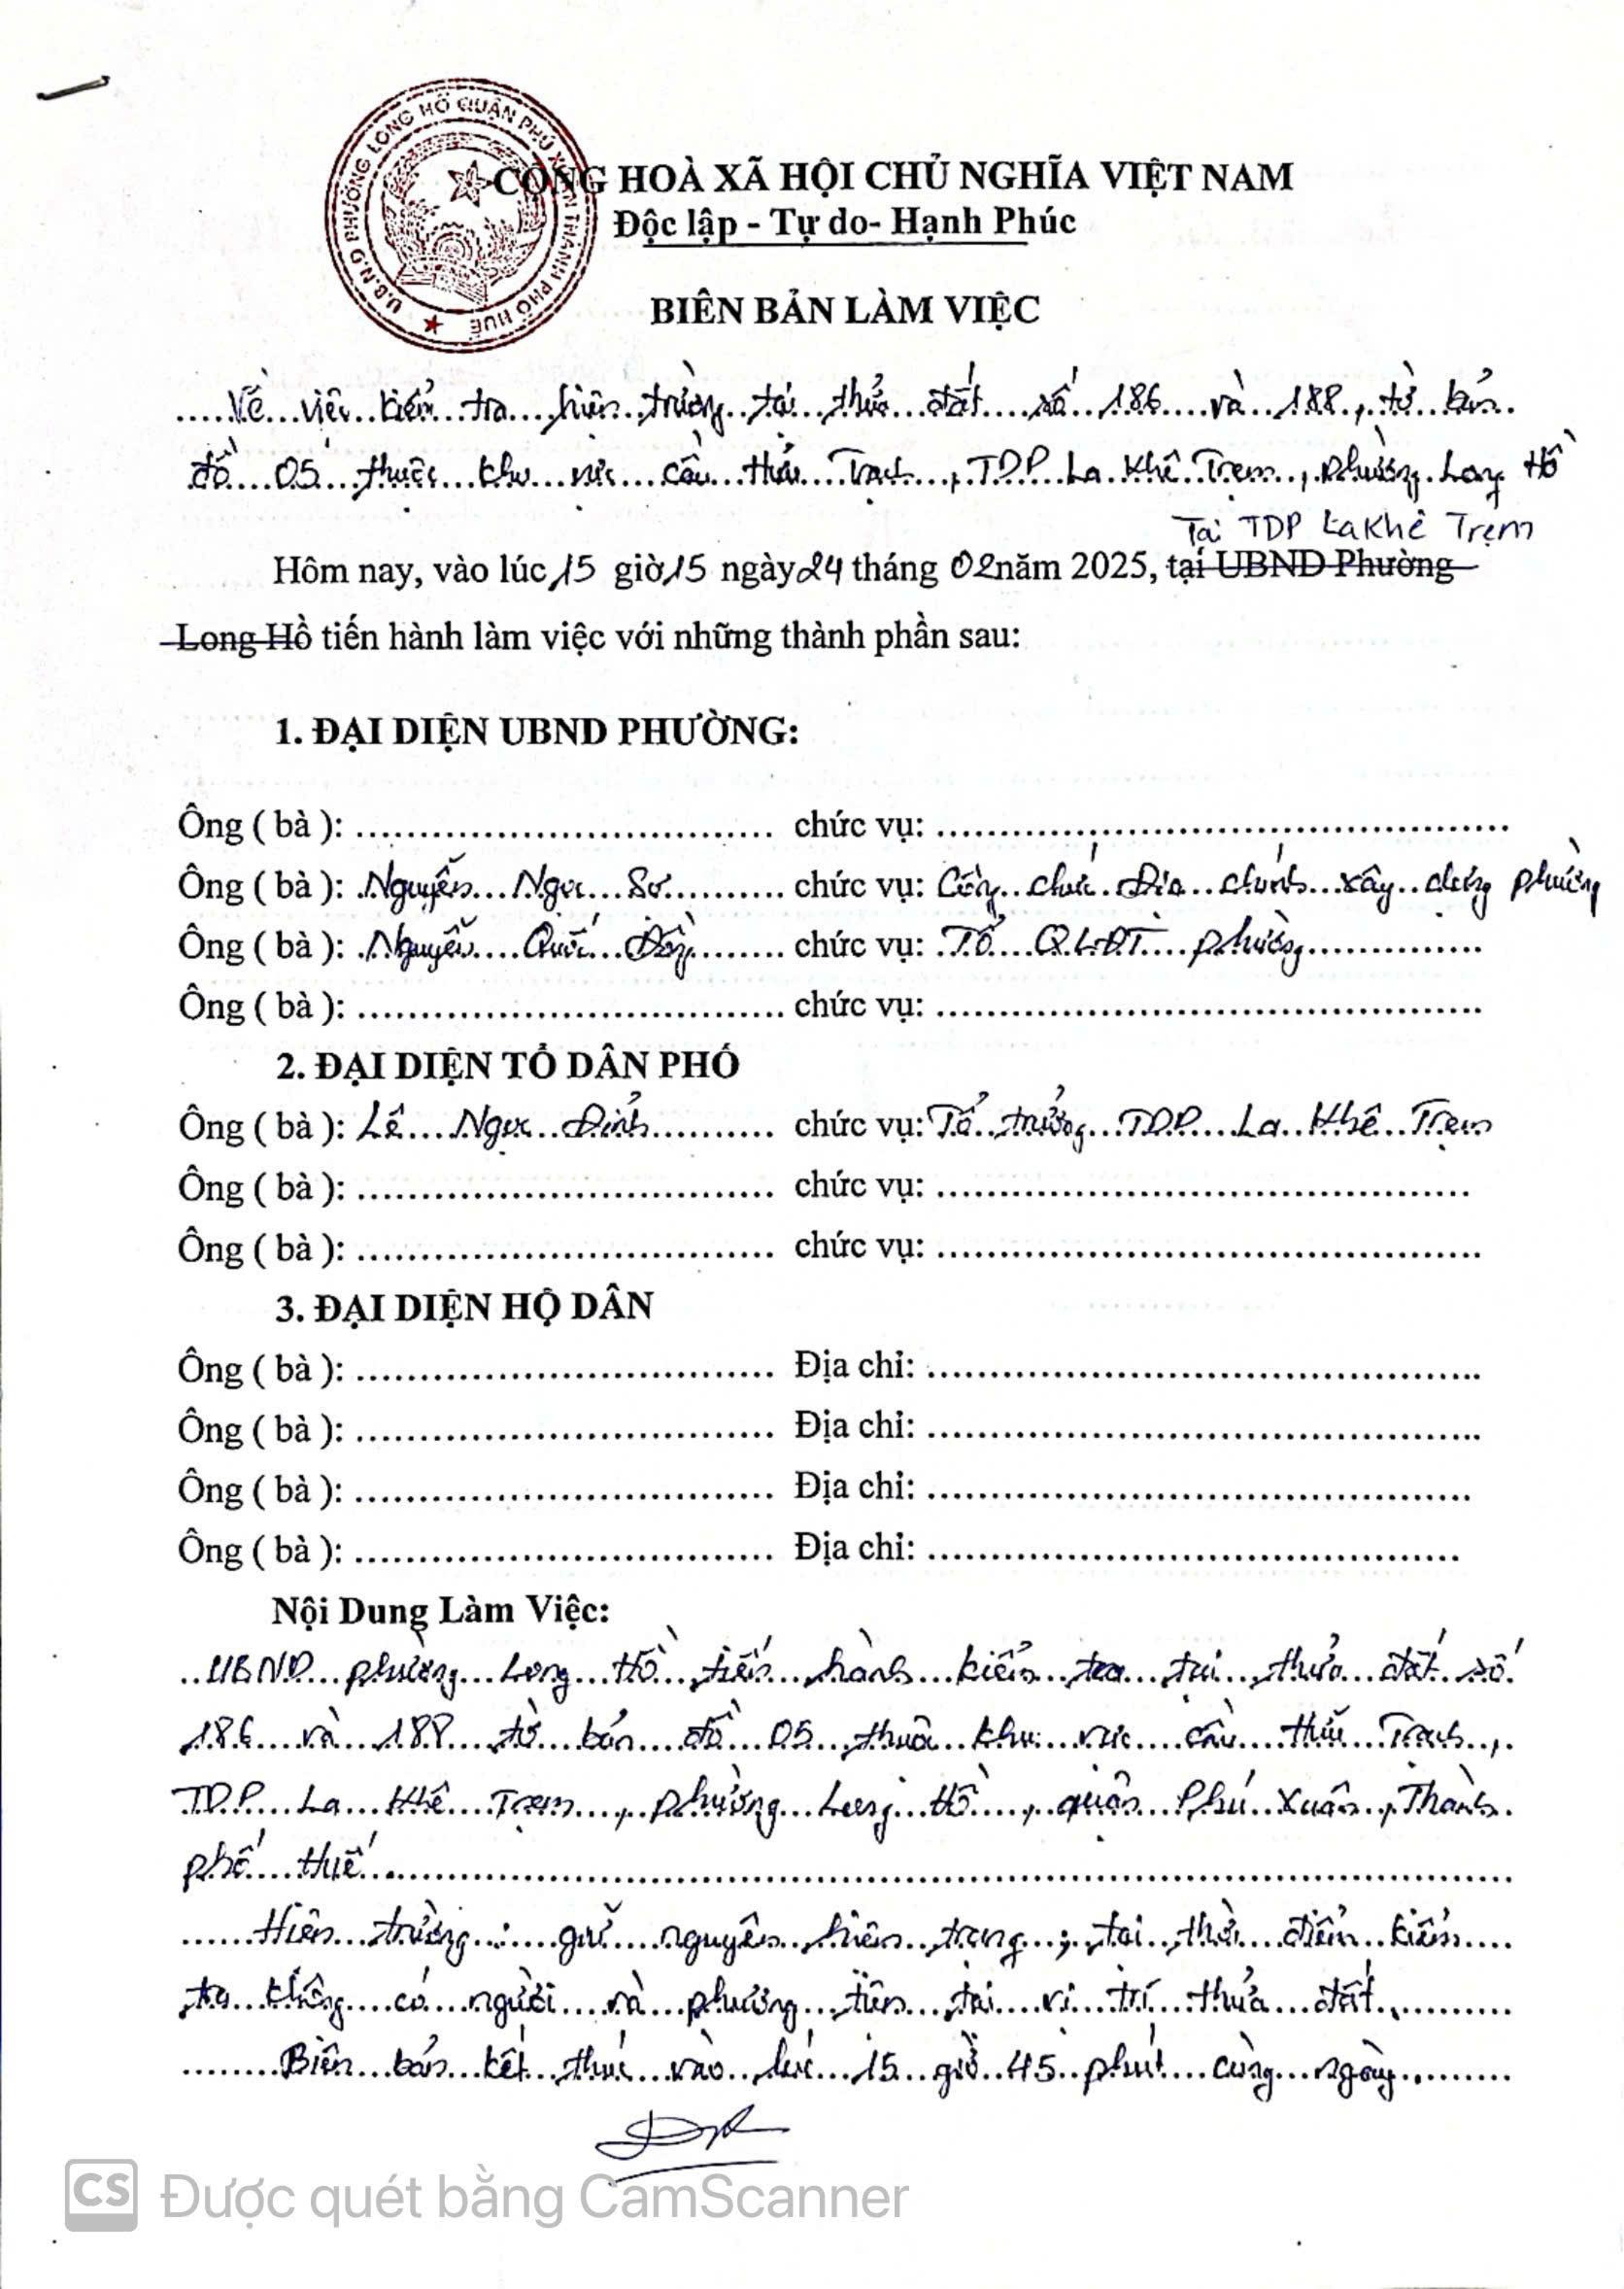 U.B.N.D PHƯỜNG LONG HỒ QUẬN PHÚ XUÂN THÀNH PHỐ HUẾ
CỘNG HOÀ XÃ HỘI CHỦ NGHĨA VIỆT NAM
Độc lập - Tự do- Hạnh Phúc
BIÊN BẢN LÀM VIỆC
Về việc kiểm tra hiện trường tại thửa đất số 186 và 188, tờ bản
đồ 05 thuộc khu vực cầu thủy Trạch, TDP La Khê Trẹm, phường Long Hồ
Tại TDP La Khê Trẹm
Hôm nay, vào lúc 15 giờ 15 ngày 24 tháng 02 năm 2025, tại UBND Phường
Long Hồ tiến hành làm việc với những thành phần sau:
1. ĐẠI DIỆN UBND PHƯỜNG:
Ông ( bà ): ................................. chức vụ: .............................................
Ông ( bà ): Nguyễn Ngọc Sơ chức vụ: Công chức Địa chính xây dựng phường
Ông ( bà ): Nguyễn Quốc chức vụ: Tổ QLĐT phường
Ông ( bà ): ................................. chức vụ: .............................................
2. ĐẠI DIỆN TỔ DÂN PHỐ
Ông ( bà ): Lê Ngọc Đỉnh chức vụ: Tổ trưởng TDP La Khê Trẹm
Ông ( bà ): ................................. chức vụ: .............................................
Ông ( bà ): ................................. chức vụ: .............................................
3. ĐẠI DIỆN HỘ DÂN
Ông ( bà ): ................................. Địa chỉ: .............................................
Ông ( bà ): ................................. Địa chỉ: .............................................
Ông ( bà ): ................................. Địa chỉ: .............................................
Ông ( bà ): ................................. Địa chỉ: .............................................
Nội Dung Làm Việc:
UBND phường Long Hồ tiến hành kiểm tra tại thửa đất số
186 và 188 tờ bản đồ 05 thuộc khu vực cầu thủy Trạch,
TDP La Khê Trẹm, phường Long Hồ, quận Phú Xuân, Thành
phố Huế
Hiện trường: giữ nguyên hiện trạng; tại thời điểm kiểm
tra không có người và phương tiện tại vị trí thửa đất.
Biên bản kết thúc vào lúc 15 giờ 45 phút cùng ngày.
CS Được quét bằng CamScanner